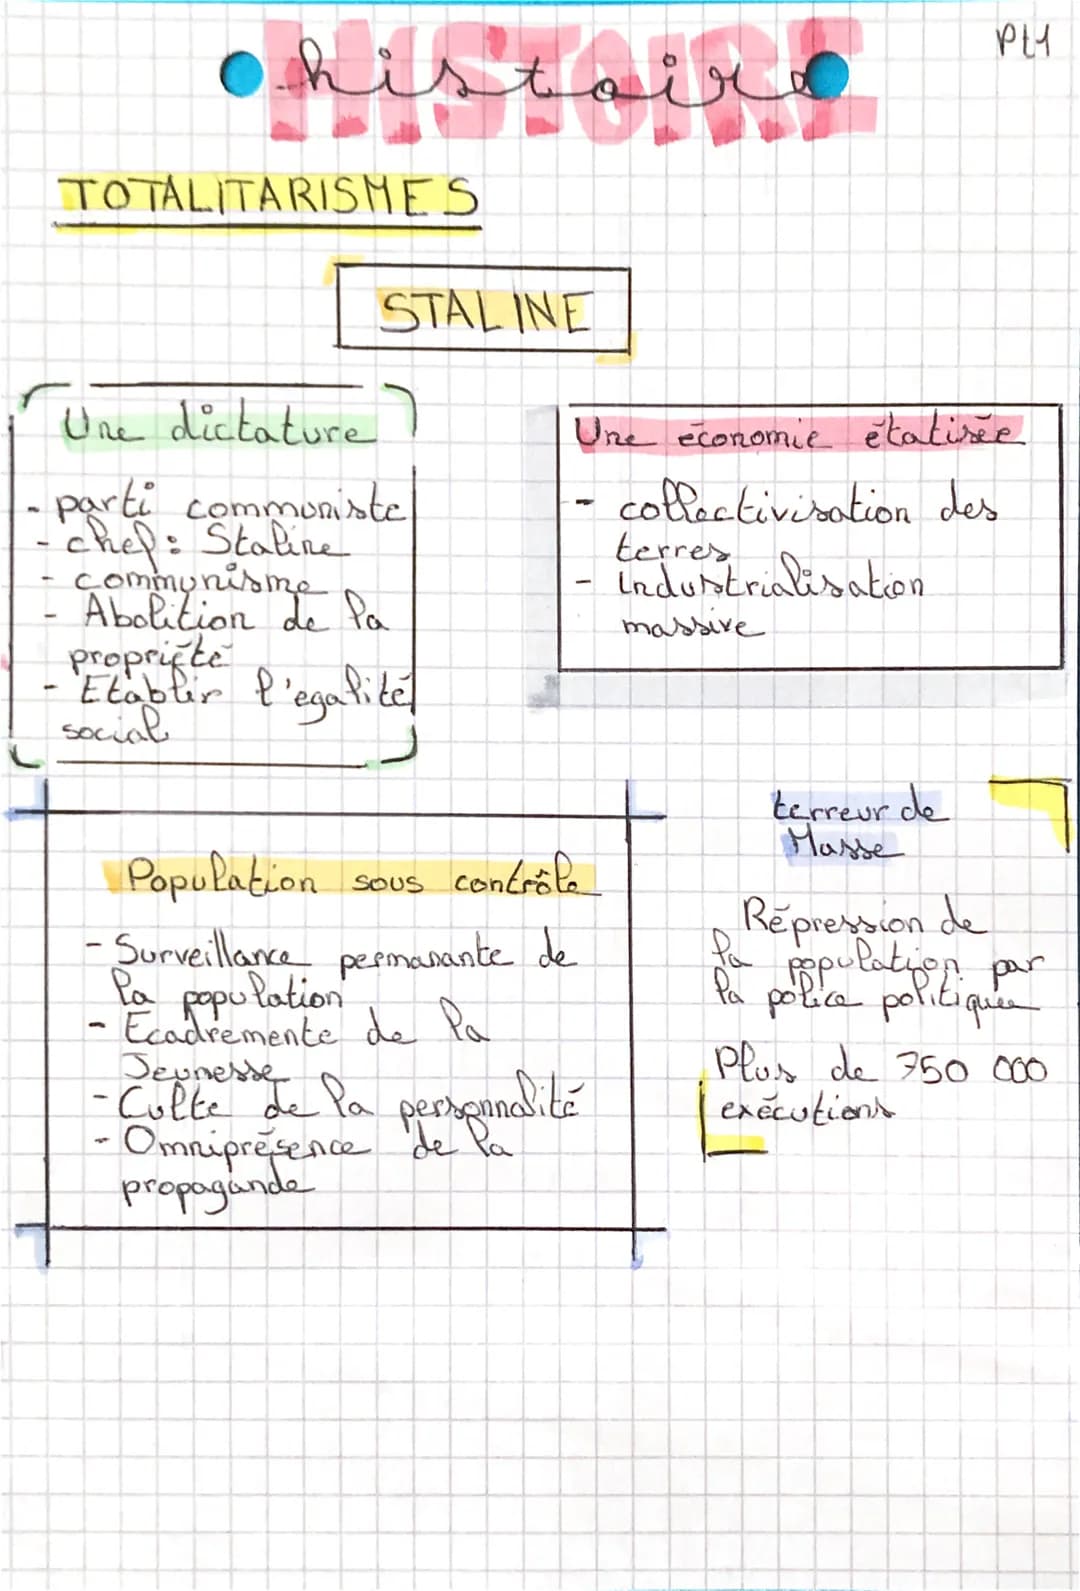 HISTOIRE
histoire
Pt1
TOTALITARISMES
STALINE
Une dictature
- parti communiste
- chef : Staline
- communisme
- Abolition de la
propriété
- Etablir l'egalité
social
Une économie étatisée
- collectivisation des
terres
- Industrialisation
massive
Population sous contrôle
- Surveillance permanante de
la population
- Ecadremente de la
Jeunesse
- Culte de la personnalité
- Omniprésence de la
propagande
terreur de
Masse
Répression de
la population par
la police politique
Plus de 750 000
exécutions